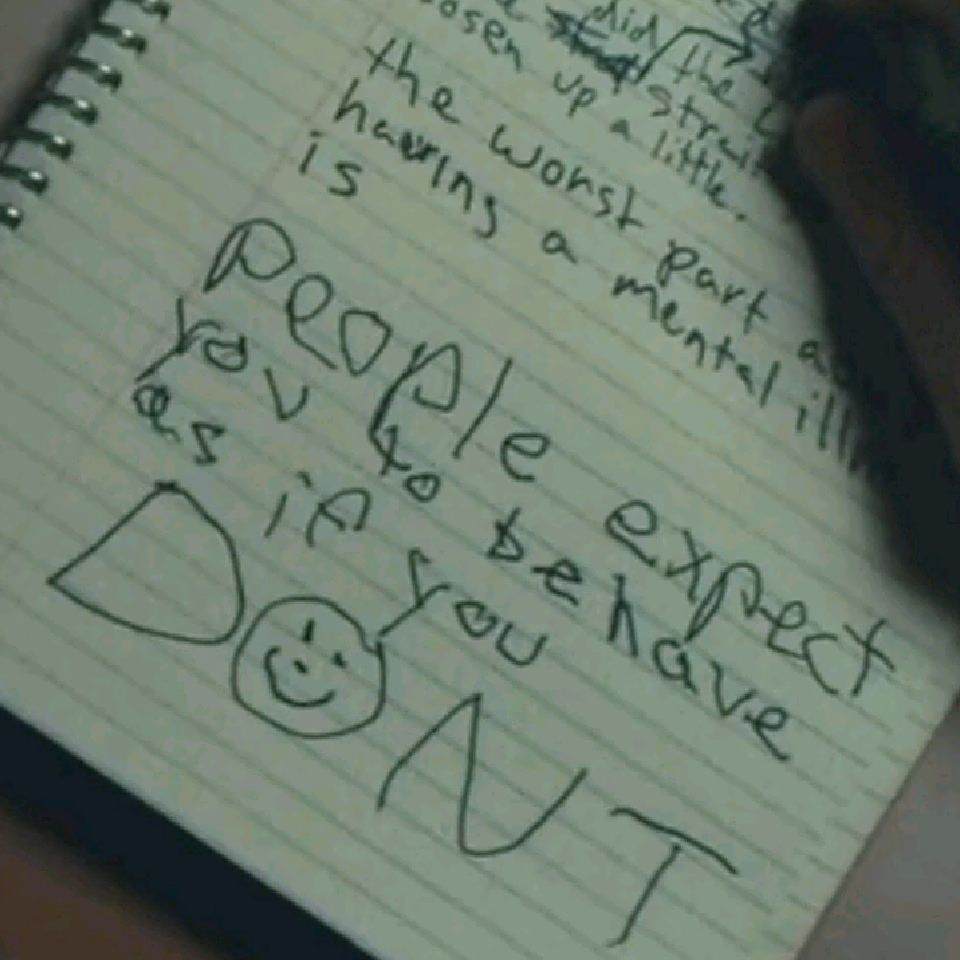 did the
osen up a little.
the worst part a
having a mental ill
is
people expect
you to behave
as if you
DONT